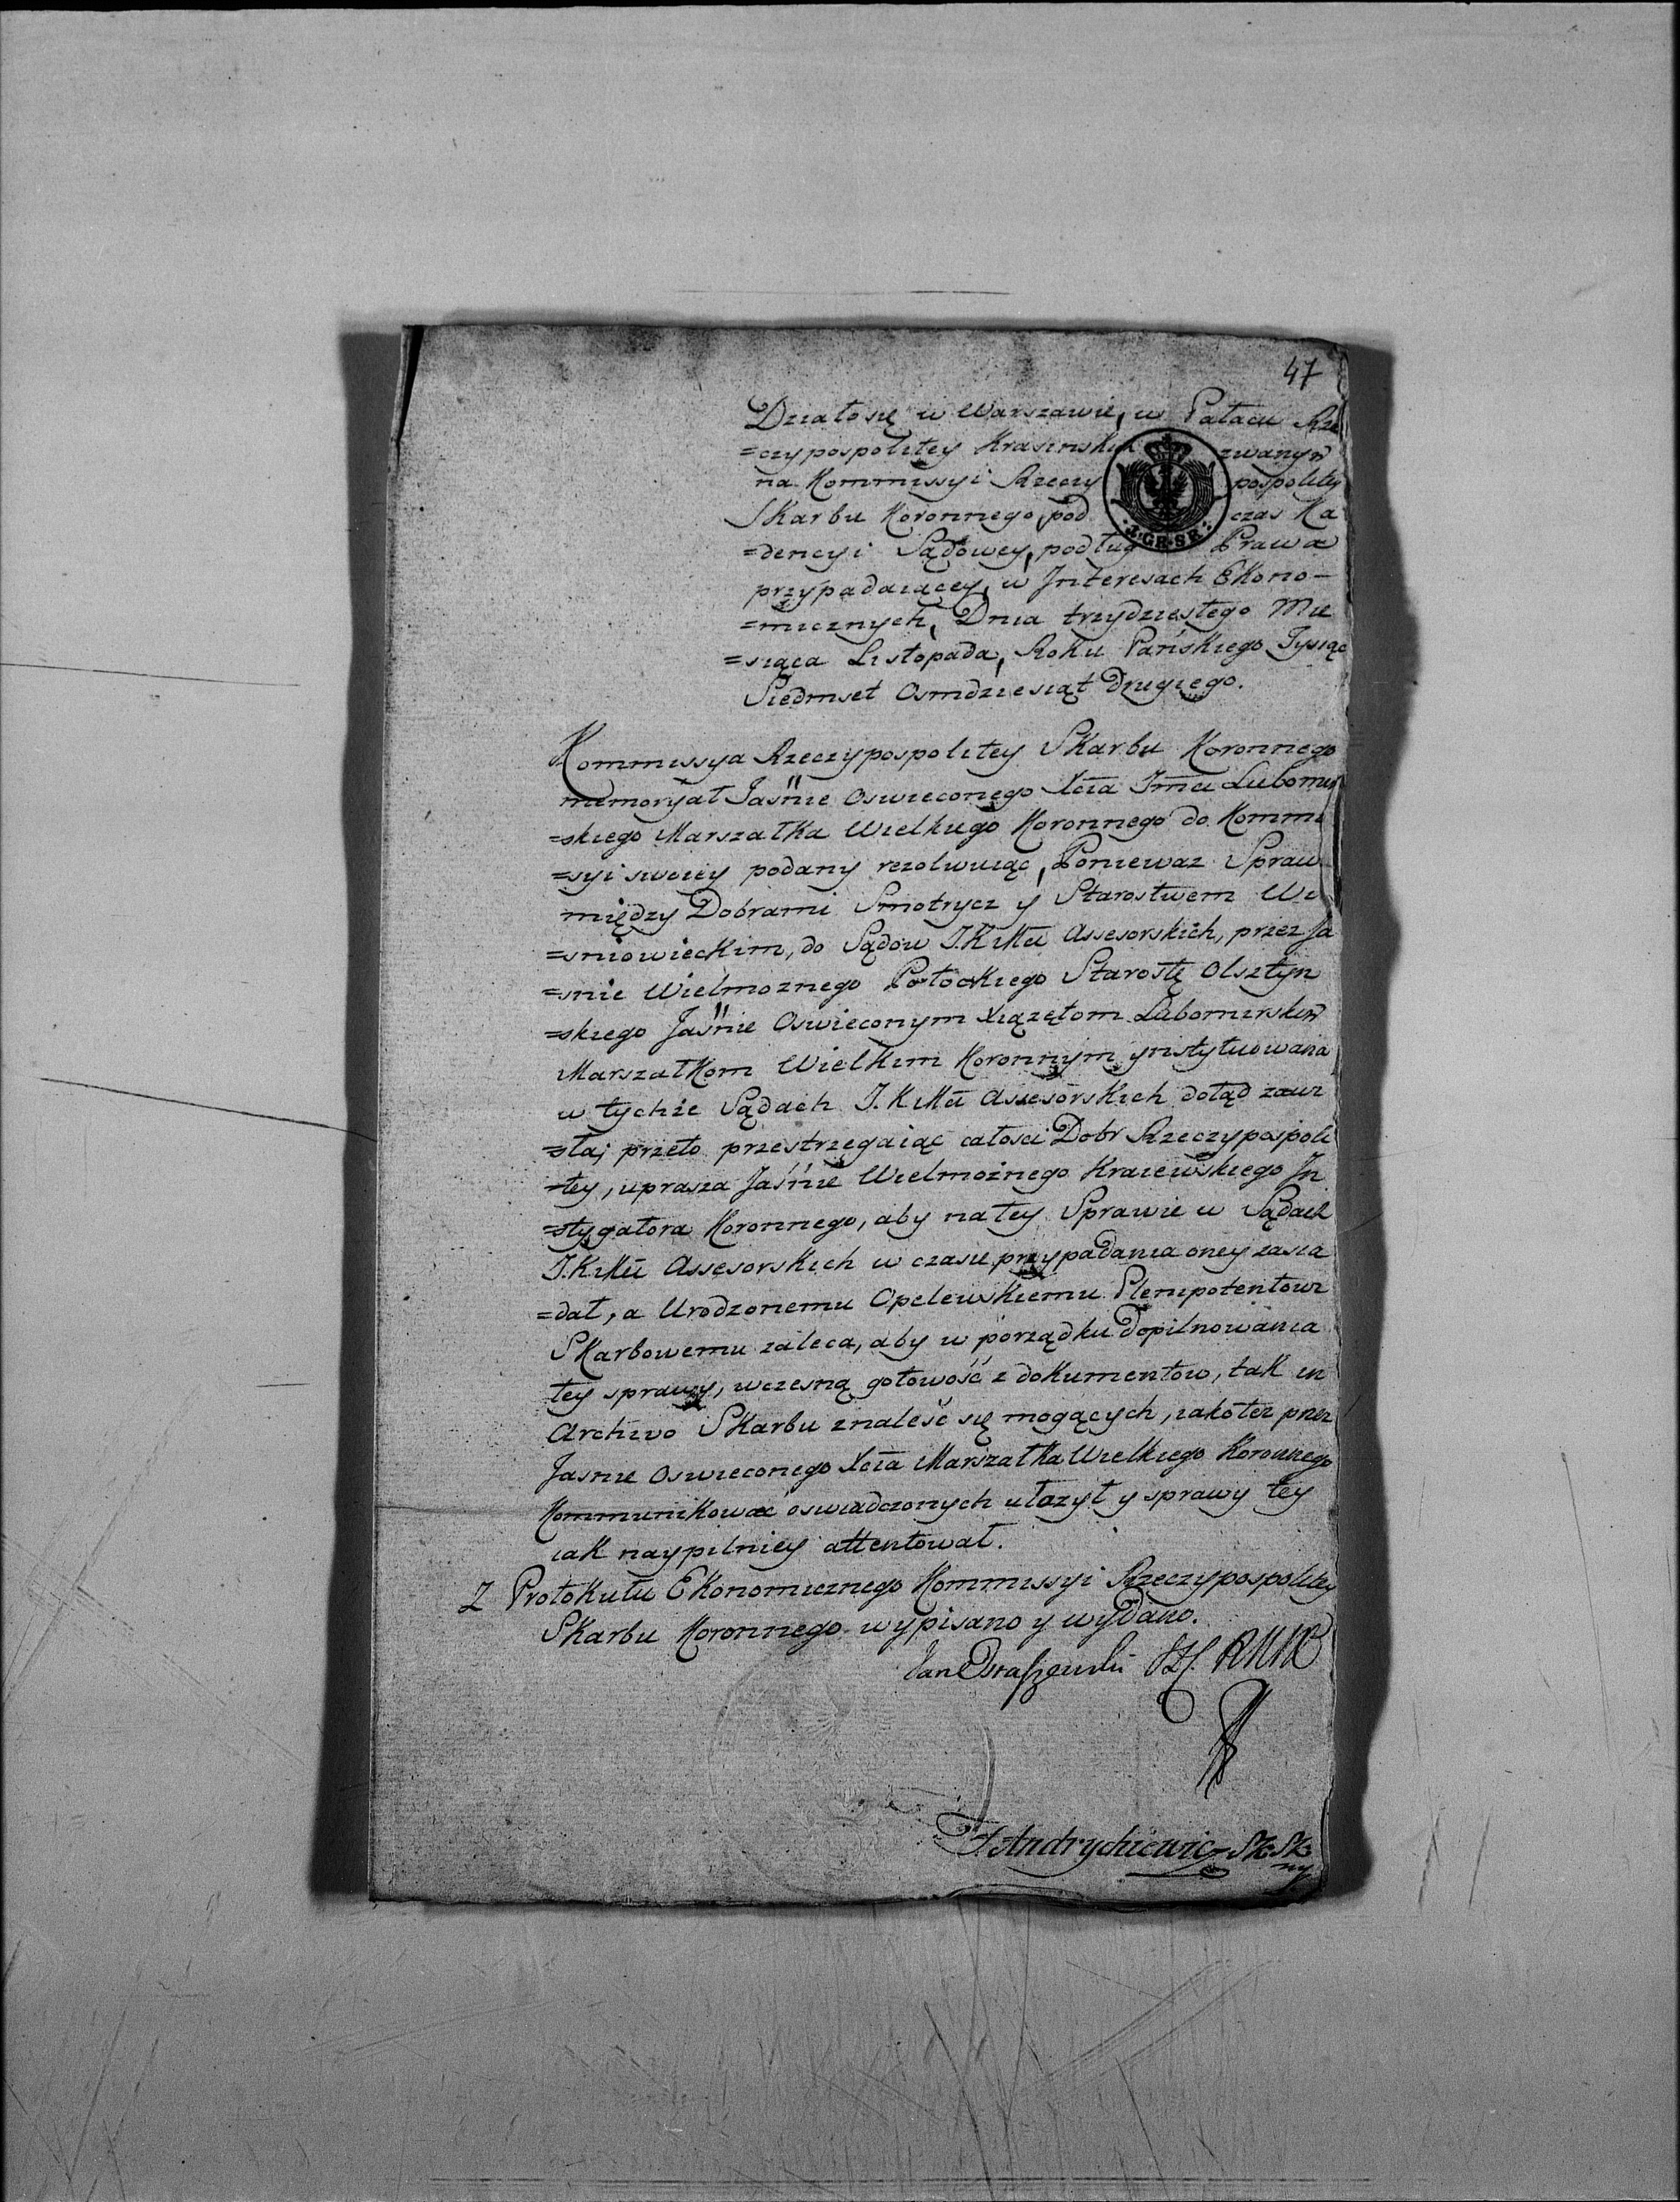 47
Działo się w Warszawie, w Pałacu Rze
=czypospolitey Krasinskich zwanym
na Kommissyi Rzeczy pospolitey
Skarbu Koronnego, pod czas Ka
=dencyi Sądowey, podług Prawa
3·GR·SR·
przypadaiącey, w Jnteresach Ekono-
=micznych, Dnia trzydziestego Mie
=siąca Listopada, Roku Pańskiego Tysiąc
Siedmset Osmdziesiąt Drugiego.
Kommissya Rzeczypospolitey Skarbu Koronnego
memoryał Jaśnie Oswieconego Xcia Jmci Lubomir
=skiego Marszałka Wielkiego Koronnego do Kommi
=syi swoiey podany rezolwuiąc, Poniewaz Spraw
między Dobrami Smotrycz y Starostwem Wi
=sniowieckim, do Sądow J.K.Mci Assesorskich, przez Ja
=snie Wielmoznego Potockiego Starostę Olsztyn
=skiego Jaśnie Oswieconym Xiązętom Lubomirskim
Marszałkom Wielkim Koronnym ynstytuowana
w tychże Sądach J.K.Mci Assesorskich dotąd zawi
=sła; przeto przestrzegaiąc całosci Dobr Rzeczypospoli
=tey, uprasza Jaśnie Wielmożnego Kraiewskiego Jn
=stygatora Koronnego, aby na tey Sprawie w Sądach
J.K.Mci Assesorskich w czasie przypadania oney zasia
=dał, a Urodzonemu Opelewskiemu Plenipotentowi
Skarbowemu zaleca, aby w porządku Dopilnowania
tey sprawy, wczesną gotowość z dokumentow, tak in
Archivo Skarbu znaleść się mogących, iako tez przez
Jasnie Oswieconego Xcia Marszałka Wielkiego Koronnego
Kommunikować oswiadczonych ułozył y sprawy tey
iak naypilniey attentował.
Z Protokułu Ekonomicznego Kommissyi Rzeczypospolitey
Skarbu Koronnego wypisano y wydano.
Jan
Andrychiewicz